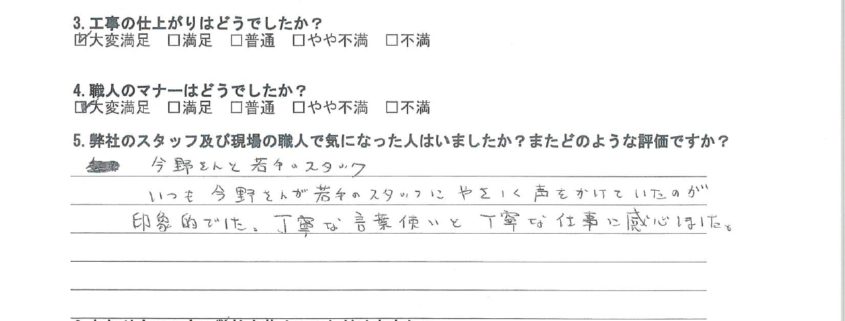 3. 工事の仕上がりはどうでしたか？
☑大変満足 □満足 □普通 □やや不満 □不満
4. 職人のマナーはどうでしたか？
☑大変満足 □満足 □普通 □やや不満 □不満
5. 弊社のスタッフ及び現場の職人で気になった人はいましたか？またどのような評価ですか？
今野さんと若手のスタッフ
いつも今野さんが若手のスタッフにやさしく声をかけていたのが
印象的でした。丁寧な言葉使いと丁寧な仕事に感心しました。